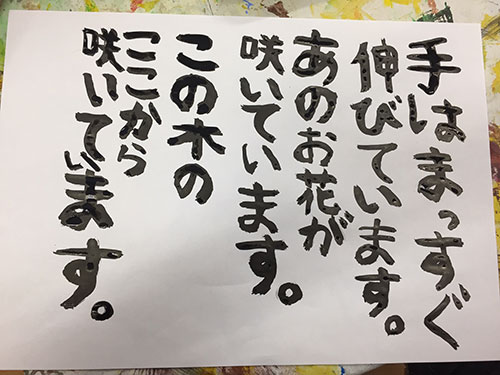 手はまっすぐ
伸びています。
あのお花が
咲いています。
この木の
ここから
咲いています。